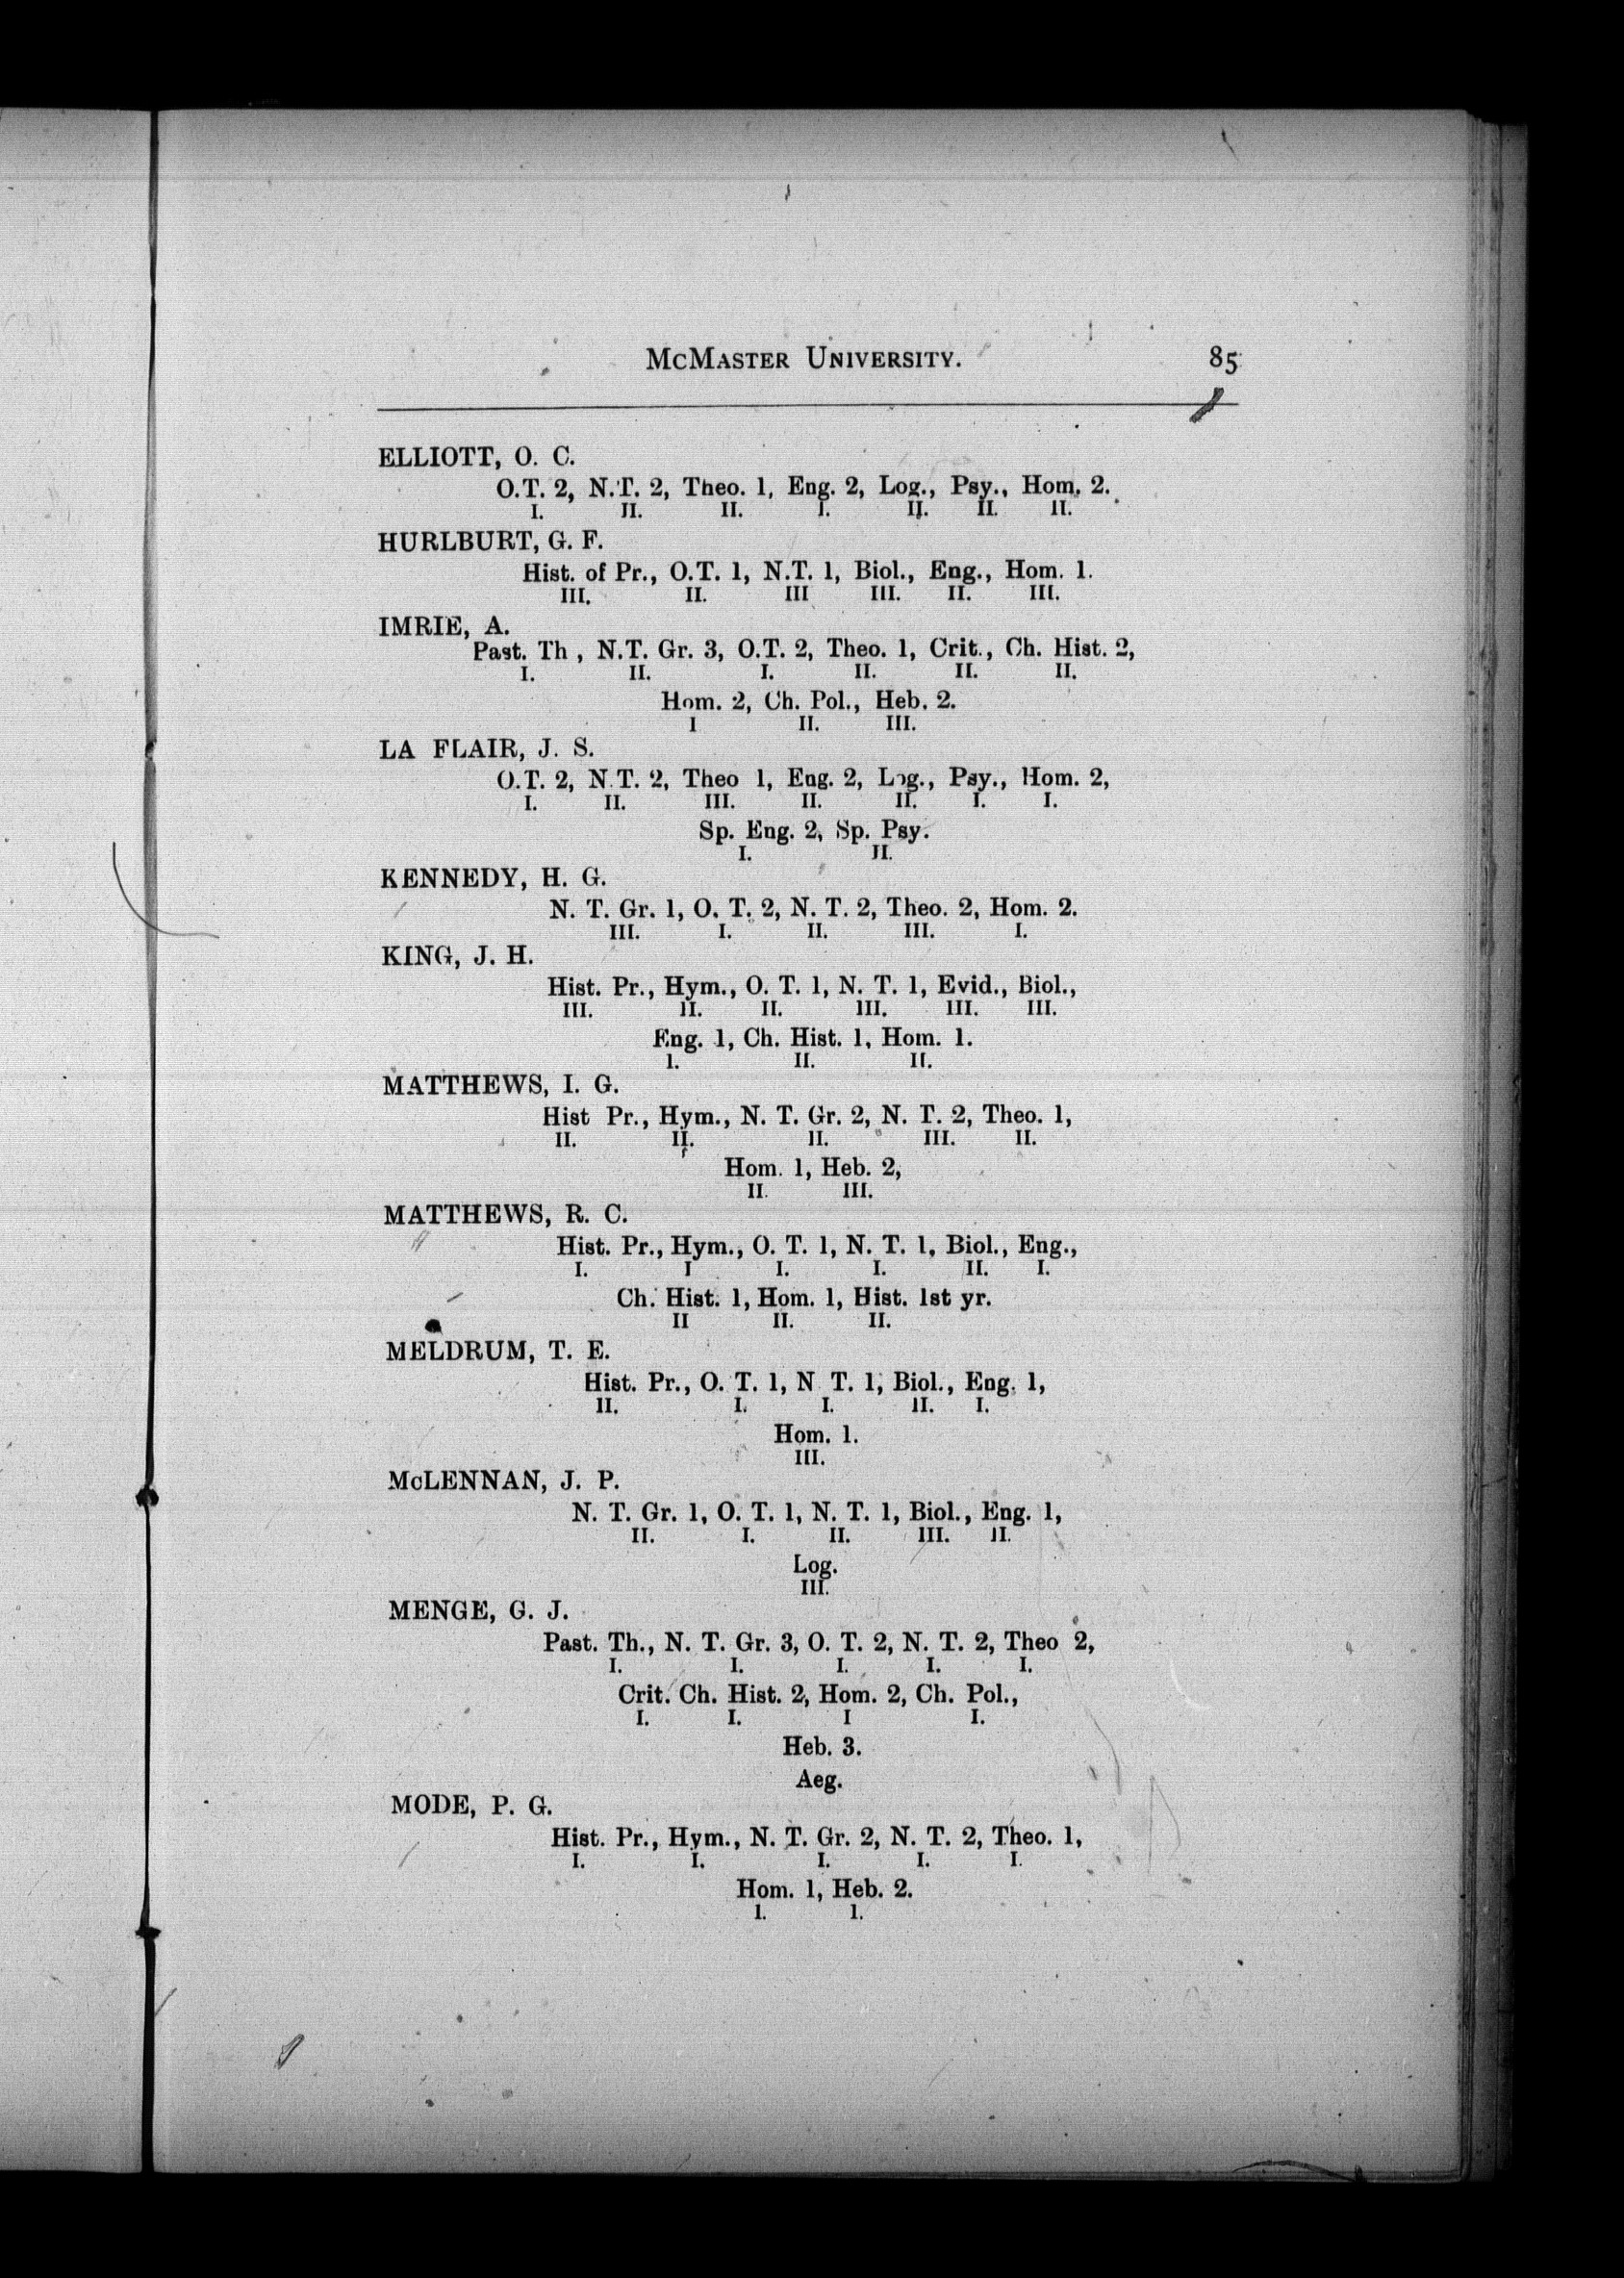 McMaster University. 85
ELLIOTT, O. C.
O.T. 2, N.T. 2, Theo. 1, Eng. 2, Log., Psy., Hom. 2.
I. II. II. I. II. II. II.
HURLBURT, G. F.
Hist. of Pr., O.T. 1, N.T. 1, Biol., Eng., Hom. 1.
III. II. III III. II. III.
IMRIE, A.
Past. Th , N.T. Gr. 3, O.T. 2, Theo. 1, Crit., Ch. Hist. 2,
I. II. I. II. II. II.
Hom. 2, Ch. Pol., Heb. 2.
I II. III.
LA FLAIR, J. S.
O.T. 2, N.T. 2, Theo 1, Eng. 2, Log., Psy., Hom. 2,
I. II. III. II. II. I. I.
Sp. Eng. 2, Sp. Psy.
I. II.
KENNEDY, H. G.
N. T. Gr. 1, O. T. 2, N. T. 2, Theo. 2, Hom. 2.
III. I. II. III. I.
KING, J. H.
Hist. Pr., Hym., O. T. 1, N. T. 1, Evid., Biol.,
III. II. II. III. III. III.
Eng. 1, Ch. Hist. 1, Hom. 1.
I. II. II.
MATTHEWS, I. G.
Hist Pr., Hym., N. T. Gr. 2, N. T. 2, Theo. 1,
II. II. II. III. II.
Hom. 1, Heb. 2,
II. III.
MATTHEWS, R. C.
Hist. Pr., Hym., O. T. 1, N. T. 1, Biol., Eng.,
I. I I. I. II. I.
Ch. Hist. 1, Hom. 1, Hist. 1st yr.
II II. II.
MELDRUM, T. E.
Hist. Pr., O. T. 1, N T. 1, Biol., Eng. 1,
II. I. I. II. I.
Hom. 1.
III.
McLENNAN, J. P.
N. T. Gr. 1, O. T. 1, N. T. 1, Biol., Eng. 1,
II. I. II. III. II.
Log.
III.
MENGE, G. J.
Past. Th., N. T. Gr. 3, O. T. 2, N. T. 2, Theo 2,
I. I. I. I. I.
Crit. Ch. Hist. 2, Hom. 2, Ch. Pol.,
I. I. I I.
Heb. 3.
Aeg.
MODE, P. G.
Hist. Pr., Hym., N. T. Gr. 2, N. T. 2, Theo. 1,
I. I. I. I. I.
Hom. 1, Heb. 2.
I. I.